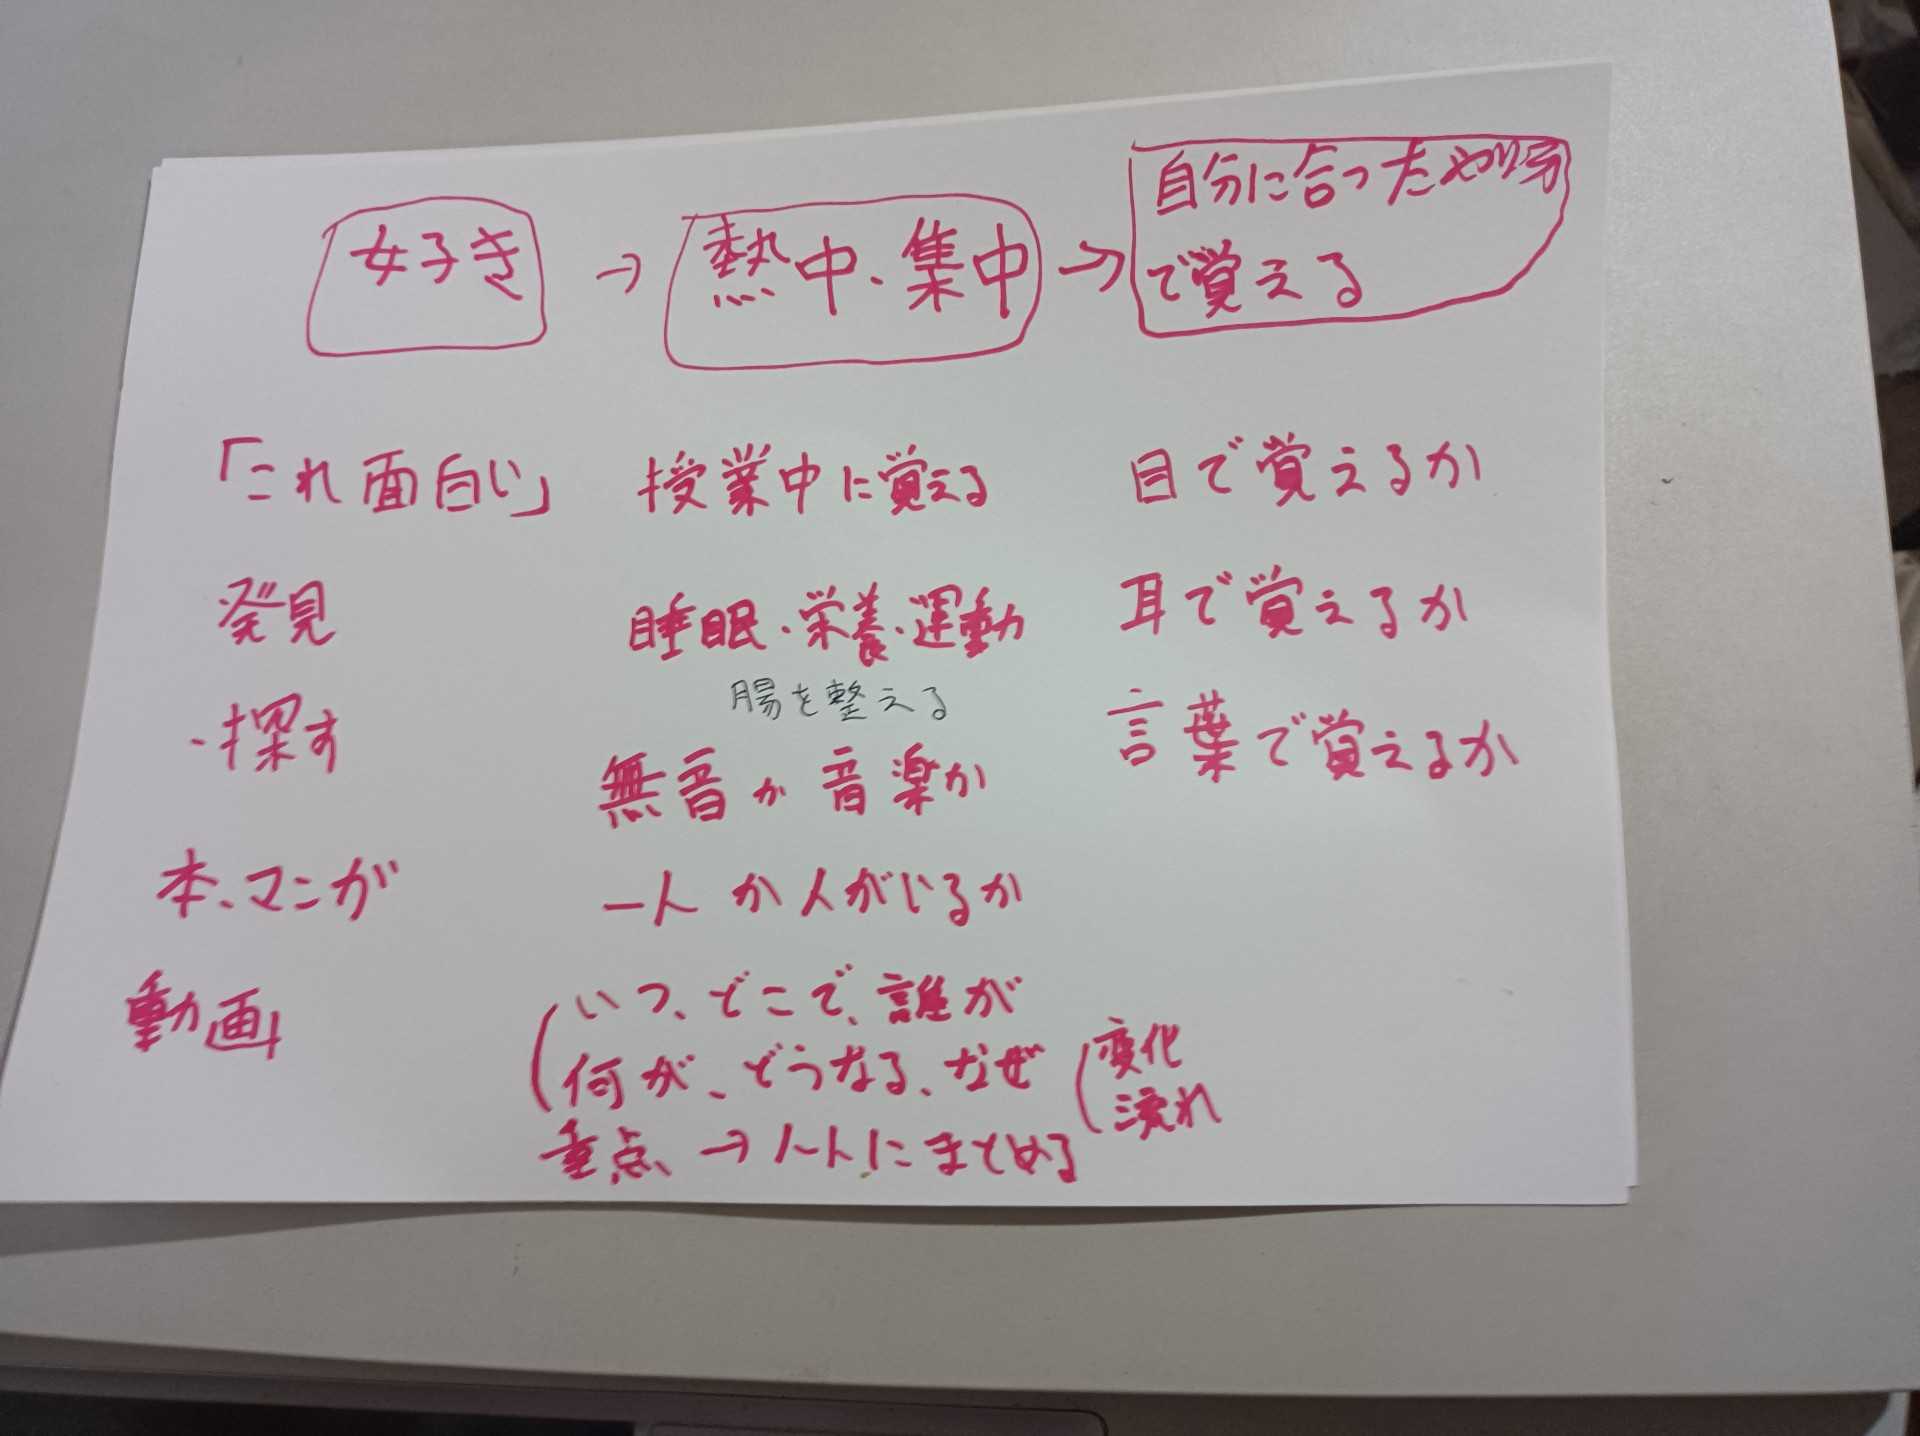 好き → 熱中・集中 → 自分に合ったやり方
で覚える
「これ面白い」
発見
・探す
本、マンガ
動画
授業中に覚える
睡眠・栄養・運動
腸を整える
無音か音楽か
一人か人がいるか
いつ、どこで、誰が
何が、どうなる、なぜ
重点→ノートにまとめる
変化
流れ
目で覚えるか
耳で覚えるか
言葉で覚えるか